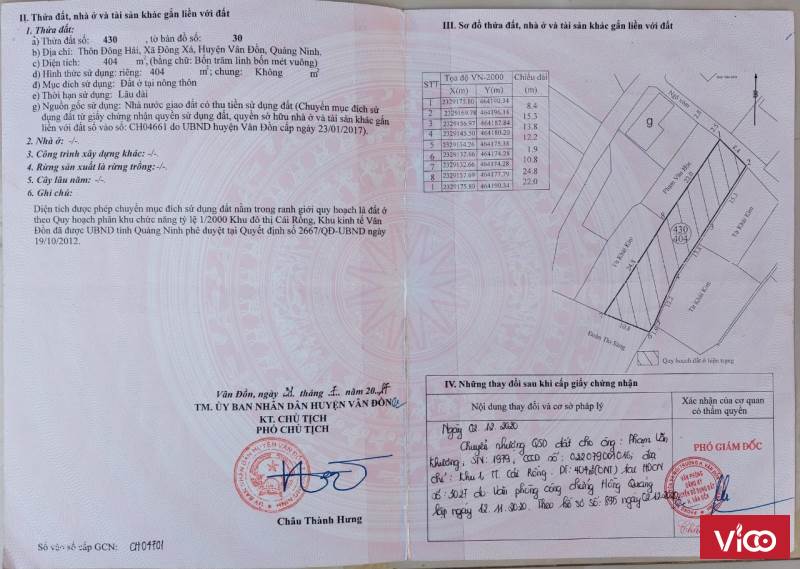 II. Thửa đất, nhà ở và tài sản khác gắn liền với đất
1. Thửa đất:
a) Thửa đất số: 430 , tờ bản đồ số: 30
b) Địa chỉ: Thôn Đông Hải, Xã Đông Xá, Huyện Vân Đồn, Quảng Ninh.
c) Diện tích: 404 m², (bằng chữ: Bốn trăm linh bốn mét vuông)
d) Hình thức sử dụng: riêng: 404 m²; chung: Không m²
đ) Mục đích sử dụng: Đất ở tại nông thôn
e) Thời hạn sử dụng: Lâu dài
g) Nguồn gốc sử dụng: Nhà nước giao đất có thu tiền sử dụng đất (Chuyển mục đích sử
dụng đất từ giấy chứng nhận quyền sử dụng đất, quyền sở hữu nhà ở và tài sản khác gắn
liền với đất số vào sổ: CH04661 do UBND huyện Vân Đồn cấp ngày 23/01/2017).
2. Nhà ở: -/-
3. Công trình xây dựng khác: -/-
4. Rừng sản xuất là rừng trồng: -/-
5. Cây lâu năm: -/-
6. Ghi chú:
Diện tích được phép chuyển mục đích sử dụng đất nằm trong ranh giới quy hoạch là đất ở
theo Quy hoạch phân khu chức năng tỷ lệ 1/2000 Khu đô thị Cái Rồng, Khu kinh tế Vân
Đồn đã được UBND tỉnh Quảng Ninh phê duyệt tại Quyết định số 2667/QĐ-UBND ngày
19/10/2012.
Vân Đồn, ngày tháng năm 2017
TM. ỦY BAN NHÂN DÂN HUYỆN VÂN ĐỒN
KT. CHỦ TỊCH
PHÓ CHỦ TỊCH
Châu Thành Hưng
Số vào sổ cấp GCN: CH04701
III. Sơ đồ thửa đất, nhà ở và tài sản khác gắn liền với đất
STT Tọa độ VN-2000 Chiều dài
X(m) Y(m) (m)
1 2329175.80 464190.34
8.4
2 2329169.78 464196.18
15.3
3 2329156.97 464187.84
13.8
4 2329145.50 464180.20
12.2
5 2329134.26 464175.38
1.9
6 2329132.66 464174.28
10.8
7
24.8
8
22.0
1 2329175.80 464190.34
Ngõ xóm
g
Phạm Văn Học
Từ Khải Kim
430
404
Từ Khải Kim
Từ Khải Kim
24.8
10.8
Đoàn Thu Sáng
Quy hoạch đất ở hiện trạng
IV. Những thay đổi sau khi cấp giấy chứng nhận
Nội dung thay đổi và cơ sở pháp lý
Xác nhận của cơ quan
có thẩm quyền
Ngày 02.12.2020
Chuyển nhượng QSD đất cho ông: Phạm Văn
Khương, SN: 1979, CCCD số: 022079001016, địa
chỉ: Khu 1, TT. Cái Rồng. DT: 404m²(ONT) theo HĐCN
số: 3027 do Văn phòng công chứng Hồng Quang
lập ngày 12.11.2020. Theo hồ sơ số: 895 ngày 02.12.2020
PHÓ GIÁM ĐỐC
VĂN PHÒNG
ĐĂNG KÝ
QUYỀN SỬ DỤNG ĐẤT
H. VÂN ĐỒN
VICO